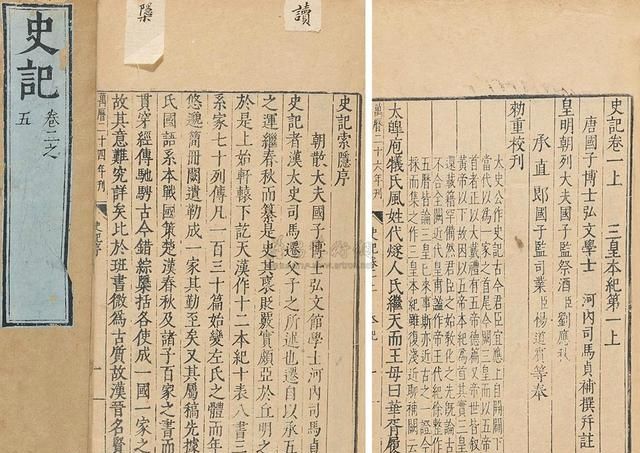 史記
卷二之
五
讀
檃
史記索隱序
朝散大夫國子博士弘文館學士河內司馬貞
史記者漢太史司馬遷父子之所述也遷自以承五
之運繼春秋而纂是史其褒貶覈實頗亞於丘明之
於是上始軒轅下訖天漢作十二本紀十表八書三
系家七十列傳凡一百三十篇始變左氏之體而年
悠邈簡冊闕遺勒成一家其勤至矣又其屬稿先據
氏國語系本戰國策楚漢春秋及諸子百家之書而
貫穿經傳馳騁古今錯綜檃括各使成一國一家之
故其意難究詳矣比於班書微為古質故漢晉名賢
萬曆二十四年刊
史記序
史記卷一上 三皇本紀第一上
唐國子博士弘文學士 河內司馬貞補撰并註
皇明朝列大夫國子監祭酒臣劉應秋
承直郎國子監司業臣楊道賓等奉
勅重校刊
太史公作史記古今君臣宜應上自開闢下
當代以為一家之首尾今闕三皇而以五帝
首者正以大戴禮有五帝德篇又帝世皆敘
黃帝以下故因以五帝本紀為首其實三皇
還載籍罕備然君臣之始教化之先既論古
不合全闕近代皇甫謐作帝王代紀徐整作
五曆皆論三皇已來事斯亦近古之一證今
採而集之作三皇本紀雖復淺近聊補闕云
太皥庖犧氏風姓代燧人氏繼天而王母曰華胥履
萬曆二十六年刊
史記卷一 本紀